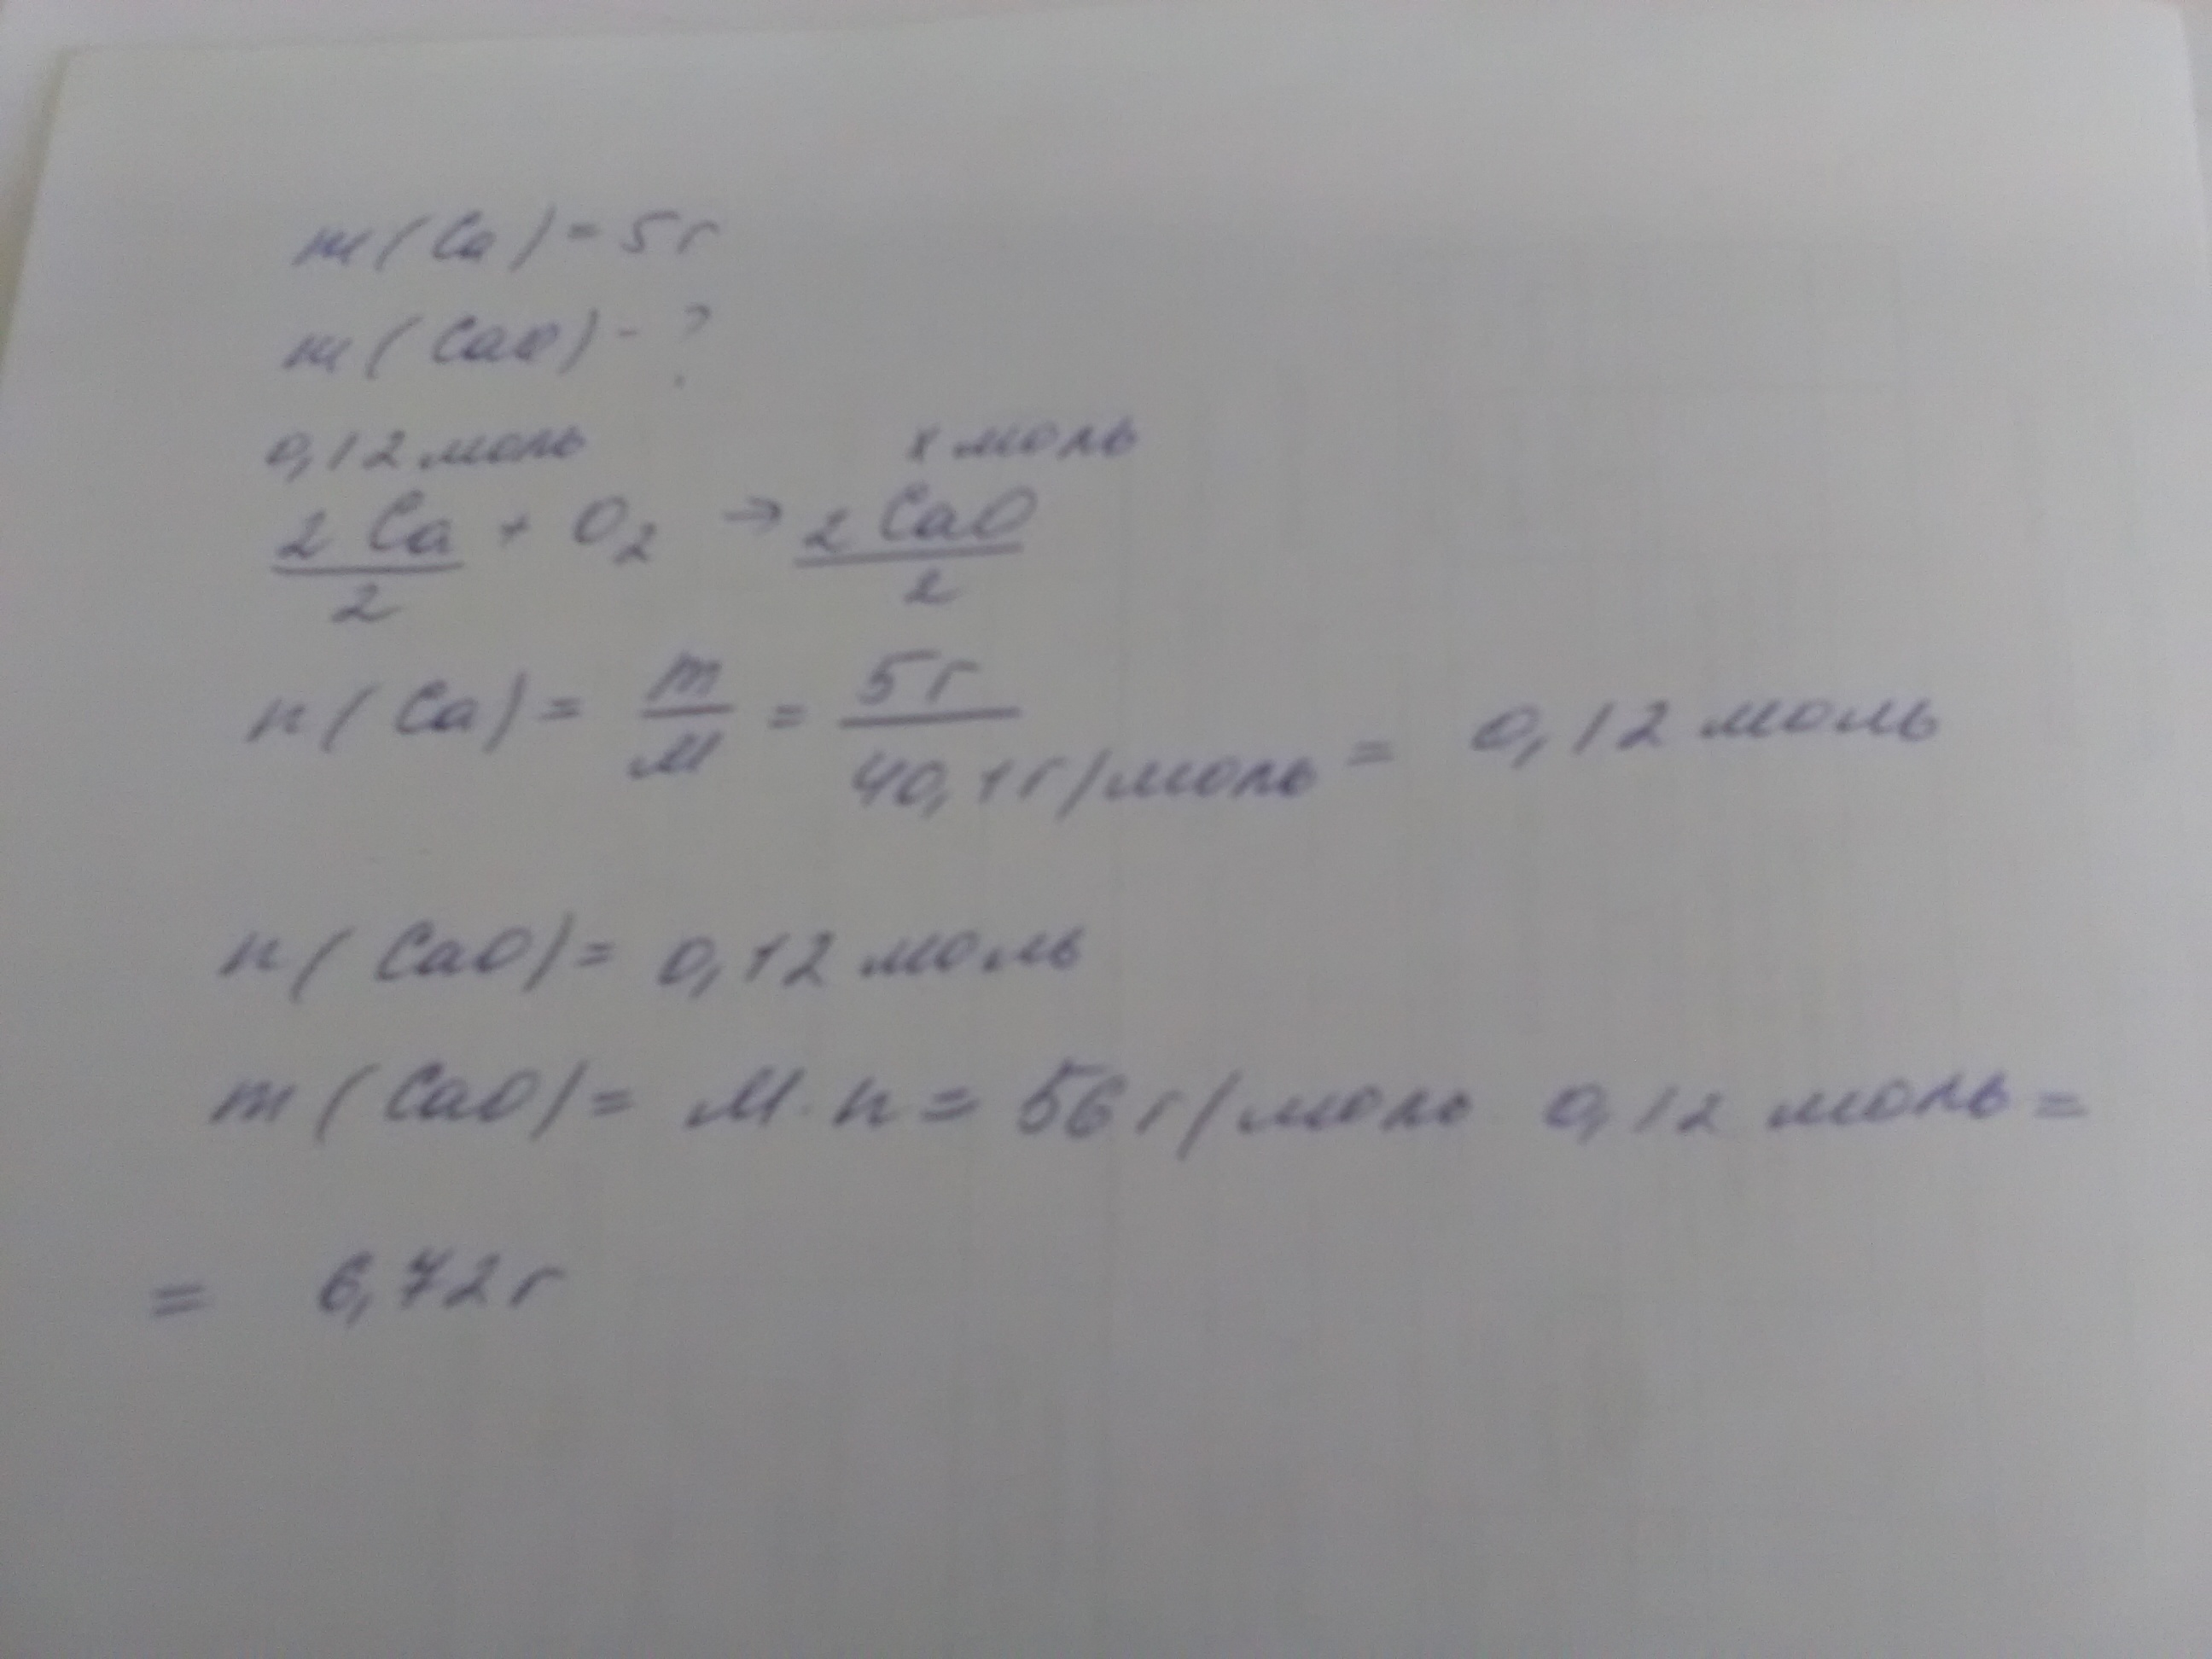 m(Ca) = 5г
m(CaO) - ?
0,12 моль x моль
2 Ca + O2 → 2 CaO
2 2
n(Ca) = m/M = 5г/40,1г/моль = 0,12 моль
n(CaO) = 0,12 моль
m(CaO) = M · n = 56 г/моль 0,12 моль =
= 6,72 г